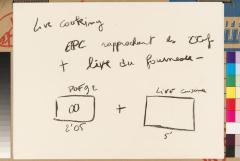 Live cooking
EPC rapprochent les
+ live du fourneau -
00
2'05
+
Live cuisine
5'